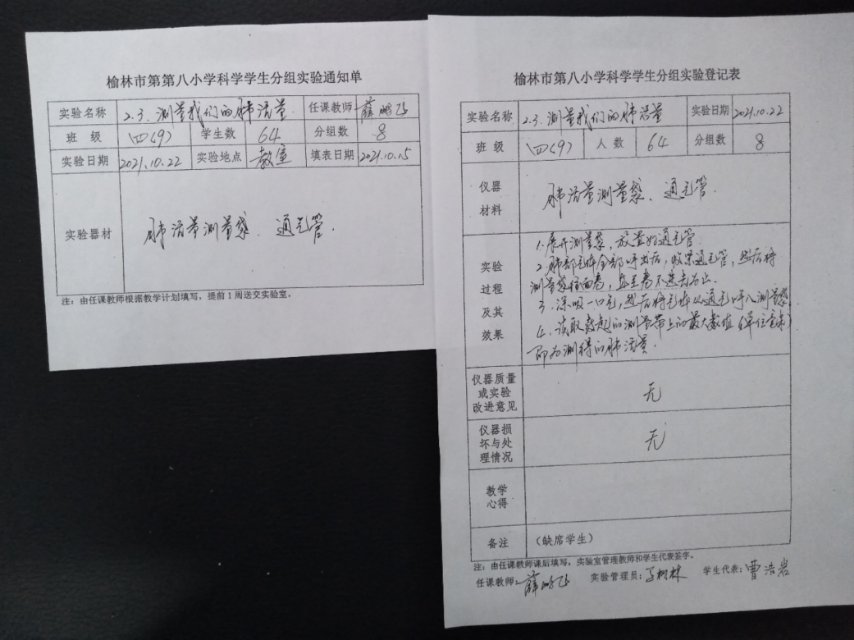 榆林市第第八小学科学学生分组实验通知单
实验名称 2.3.测量我们的肺活量 任课教师 薛
班 级 四(9) 学生数 64 分组数 8
实验日期 2021.10.22 实验地点 教室 填表日期 2021.10.15
实验器材 肺活量测量袋、通气管.
注：由任课教师根据教学计划填写，提前1周送交实验室。
榆林市第八小学科学学生分组实验登记表
实验名称 2.3.测量我们的肺活量 实验日期 2021.10.22
班 级 四(9) 人 数 64 分组数 8
仪器
材料
肺活量测量袋、通气管.
实验
过程
及其
效果
1.展开测量袋，放置好通气管.
2.肺部气体全部呼出后，收紧通气管，然后将
测量袋
3.深吸一口气，然后将气体从通气 呼入测量袋.
4.读取 的测量带上的最大数值(单位毫升)
即为测得的肺活量.
仪器质量
或实验
改进意见
无
仪器损
坏与处
理情况
无
教学
心得
备注 （缺席学生）
注：由任课教师课后填写，实验室管理教师和学生代表签字。
任课教师: 薛 实验管理员: 树林 学生代表: 曹浩岩